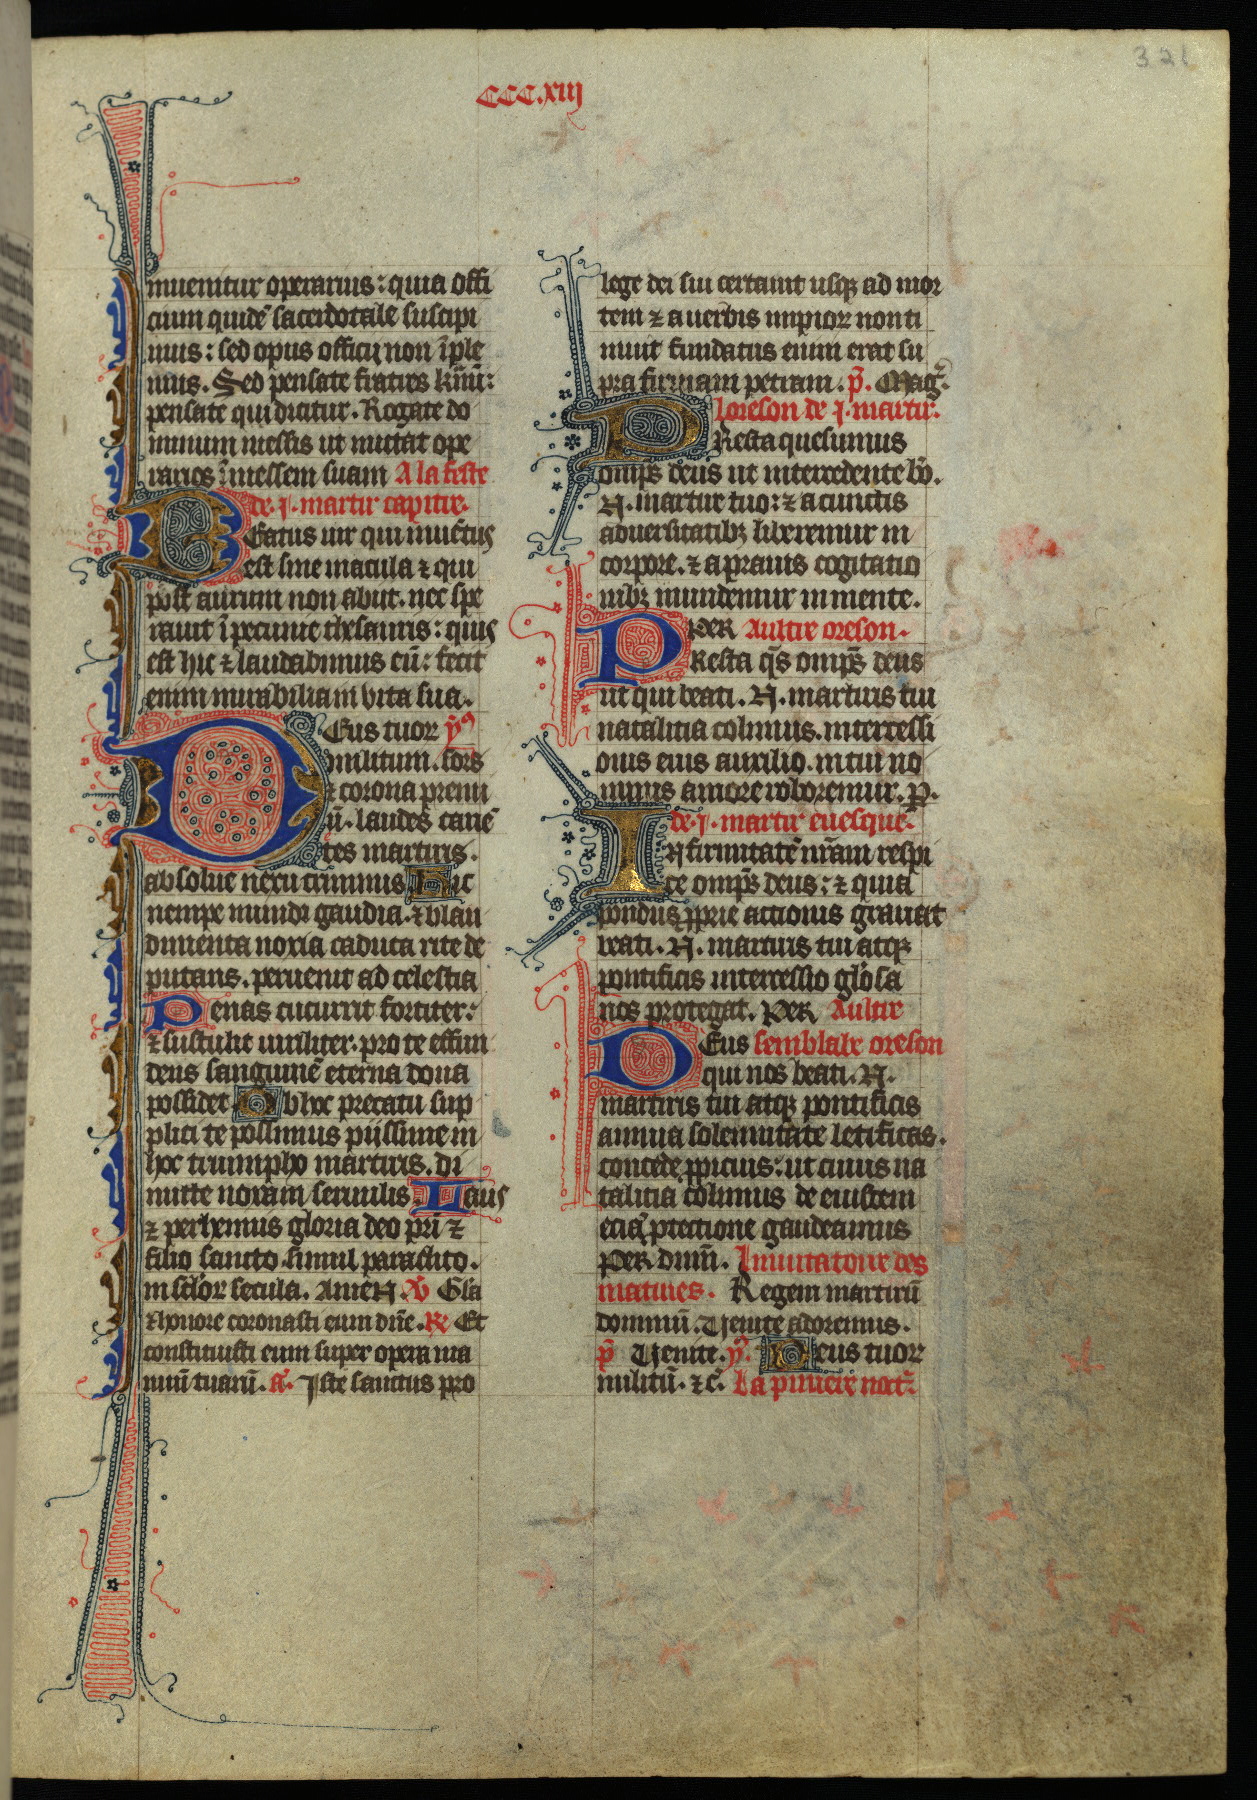 321
CCC.xiij
inuenitur operarius: quia offi
cium quidē sacerdotale suscipi
mus: sed opus officij non īple
mus. Sed pensate fratres kr̄mi:
pensate qui dicitur. Rogate do
minum messis ut mittat ope
rarios ī messem suam A la feste
de .j. martir capitre.
Beatus uir qui inuētus
est sine macula ⁊ qui
post aurum non abiit. nec spe
rauit ī pecunie thesauris: quis
est hic ⁊ laudabimus eū: fecit
enim mirabilia in vita sua.
Deus tuor ỹ9
militum. sors
⁊ corona premi
ū. laudes canē
tes martiris.
absolue nexu criminis Hic
nempe mundi gaudia. ⁊ blan
dimenta noxia caduca rite de
putans. peruenit ad celestia
Penas cucurrit fortiter:
⁊ sustulit uiriliter. pro te effun
dens sanguinē eterna dona
possidet Ob hoc precatu sup
plici te possimus piissime in
hoc triumpho martiris. di
mitte noxam seruulis. Laus
⁊ perhemnis gloria deo pri ⁊
filio sancto simul paraclito.
in sclor secula. AmeN. xv Gla
⁊ honore coronasti eum dn̄e. Rx Et
constituisti eum super opera ma
nuū tuarū. a. Iste sanctus pro
lege dei sui certauit usq; ad mor
tem ⁊ a uerbis impior non ti
muit fundatus enim erat su
pra firmam petram. p̄. Mag.
loreson de .j. martir.
Presta quesumus
omips deus ut intercedente bo.
N. martire tuo: ⁊ a cunctis
aduersitatib; liberemur in
corpore. ⁊ a prauis cogitatio
nib; mundemur in mente.
PER Aultre oreson.
Presta qs omips deus
ut qui beati. N. martiris tui
natalitia colimus. intercessi
onis eius auxilio. in tui no
minis amore roboremur. p.
de .j. martir euesque.
Infirmitatē nr̄am respi
ce omips deus: ⁊ quia
pondus pprie actionis grauat
beati. N. martiris tui atq;
pontificis intercessio glosa
nos protegat. PER Aultre
Deus semblable oreson
qui nos beati. N.
martiris tui atq; pontificis
annua solennitate letificas.
concede ppicius: ut cuius na
talitia colimus de eiusdem
etiā ptectione gaudeamus
PER dnm̄. Inuitatoire des
matines. Regem martirū
dominū. Uenite adoremus.
p̄ Uenite. ỹ. Deus tuor
militū. ⁊c̄. La p̄miere noct.